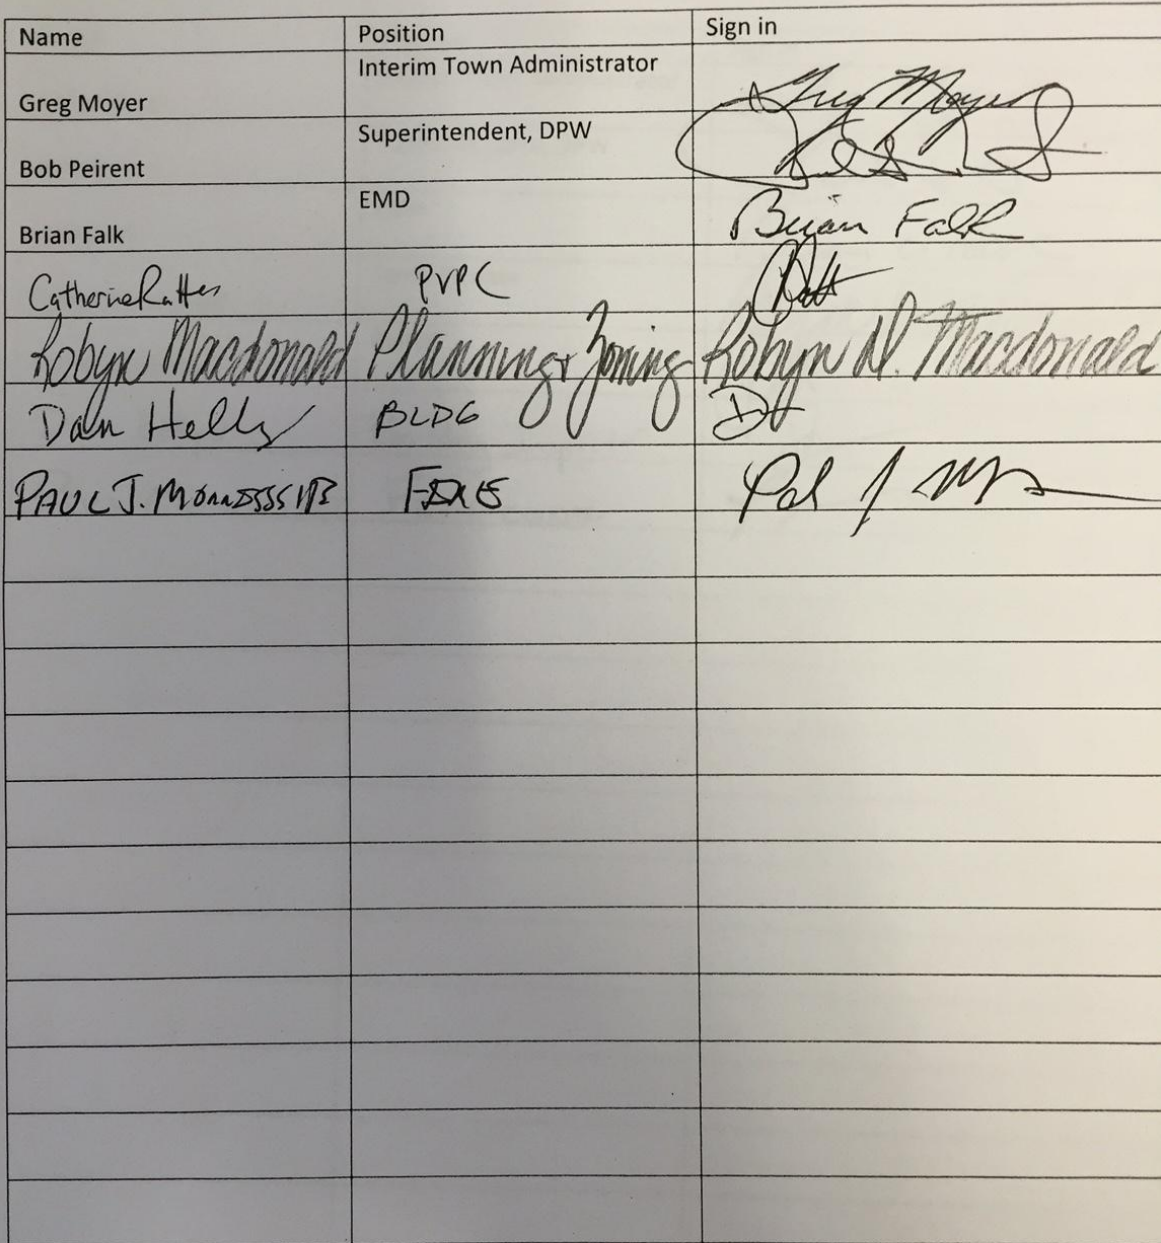 Name Position Sign in
Greg Moyer Interim Town Administrator Greg Moyer
Bob Peirent Superintendent, DPW
Brian Falk EMD Brian Falk
Catherine Ratte PVPC
Robyn Macdonald Planning & Zoning Robyn D. Macdonald
Dan Hells BLDG
PAUL J. Morrissette FIRE